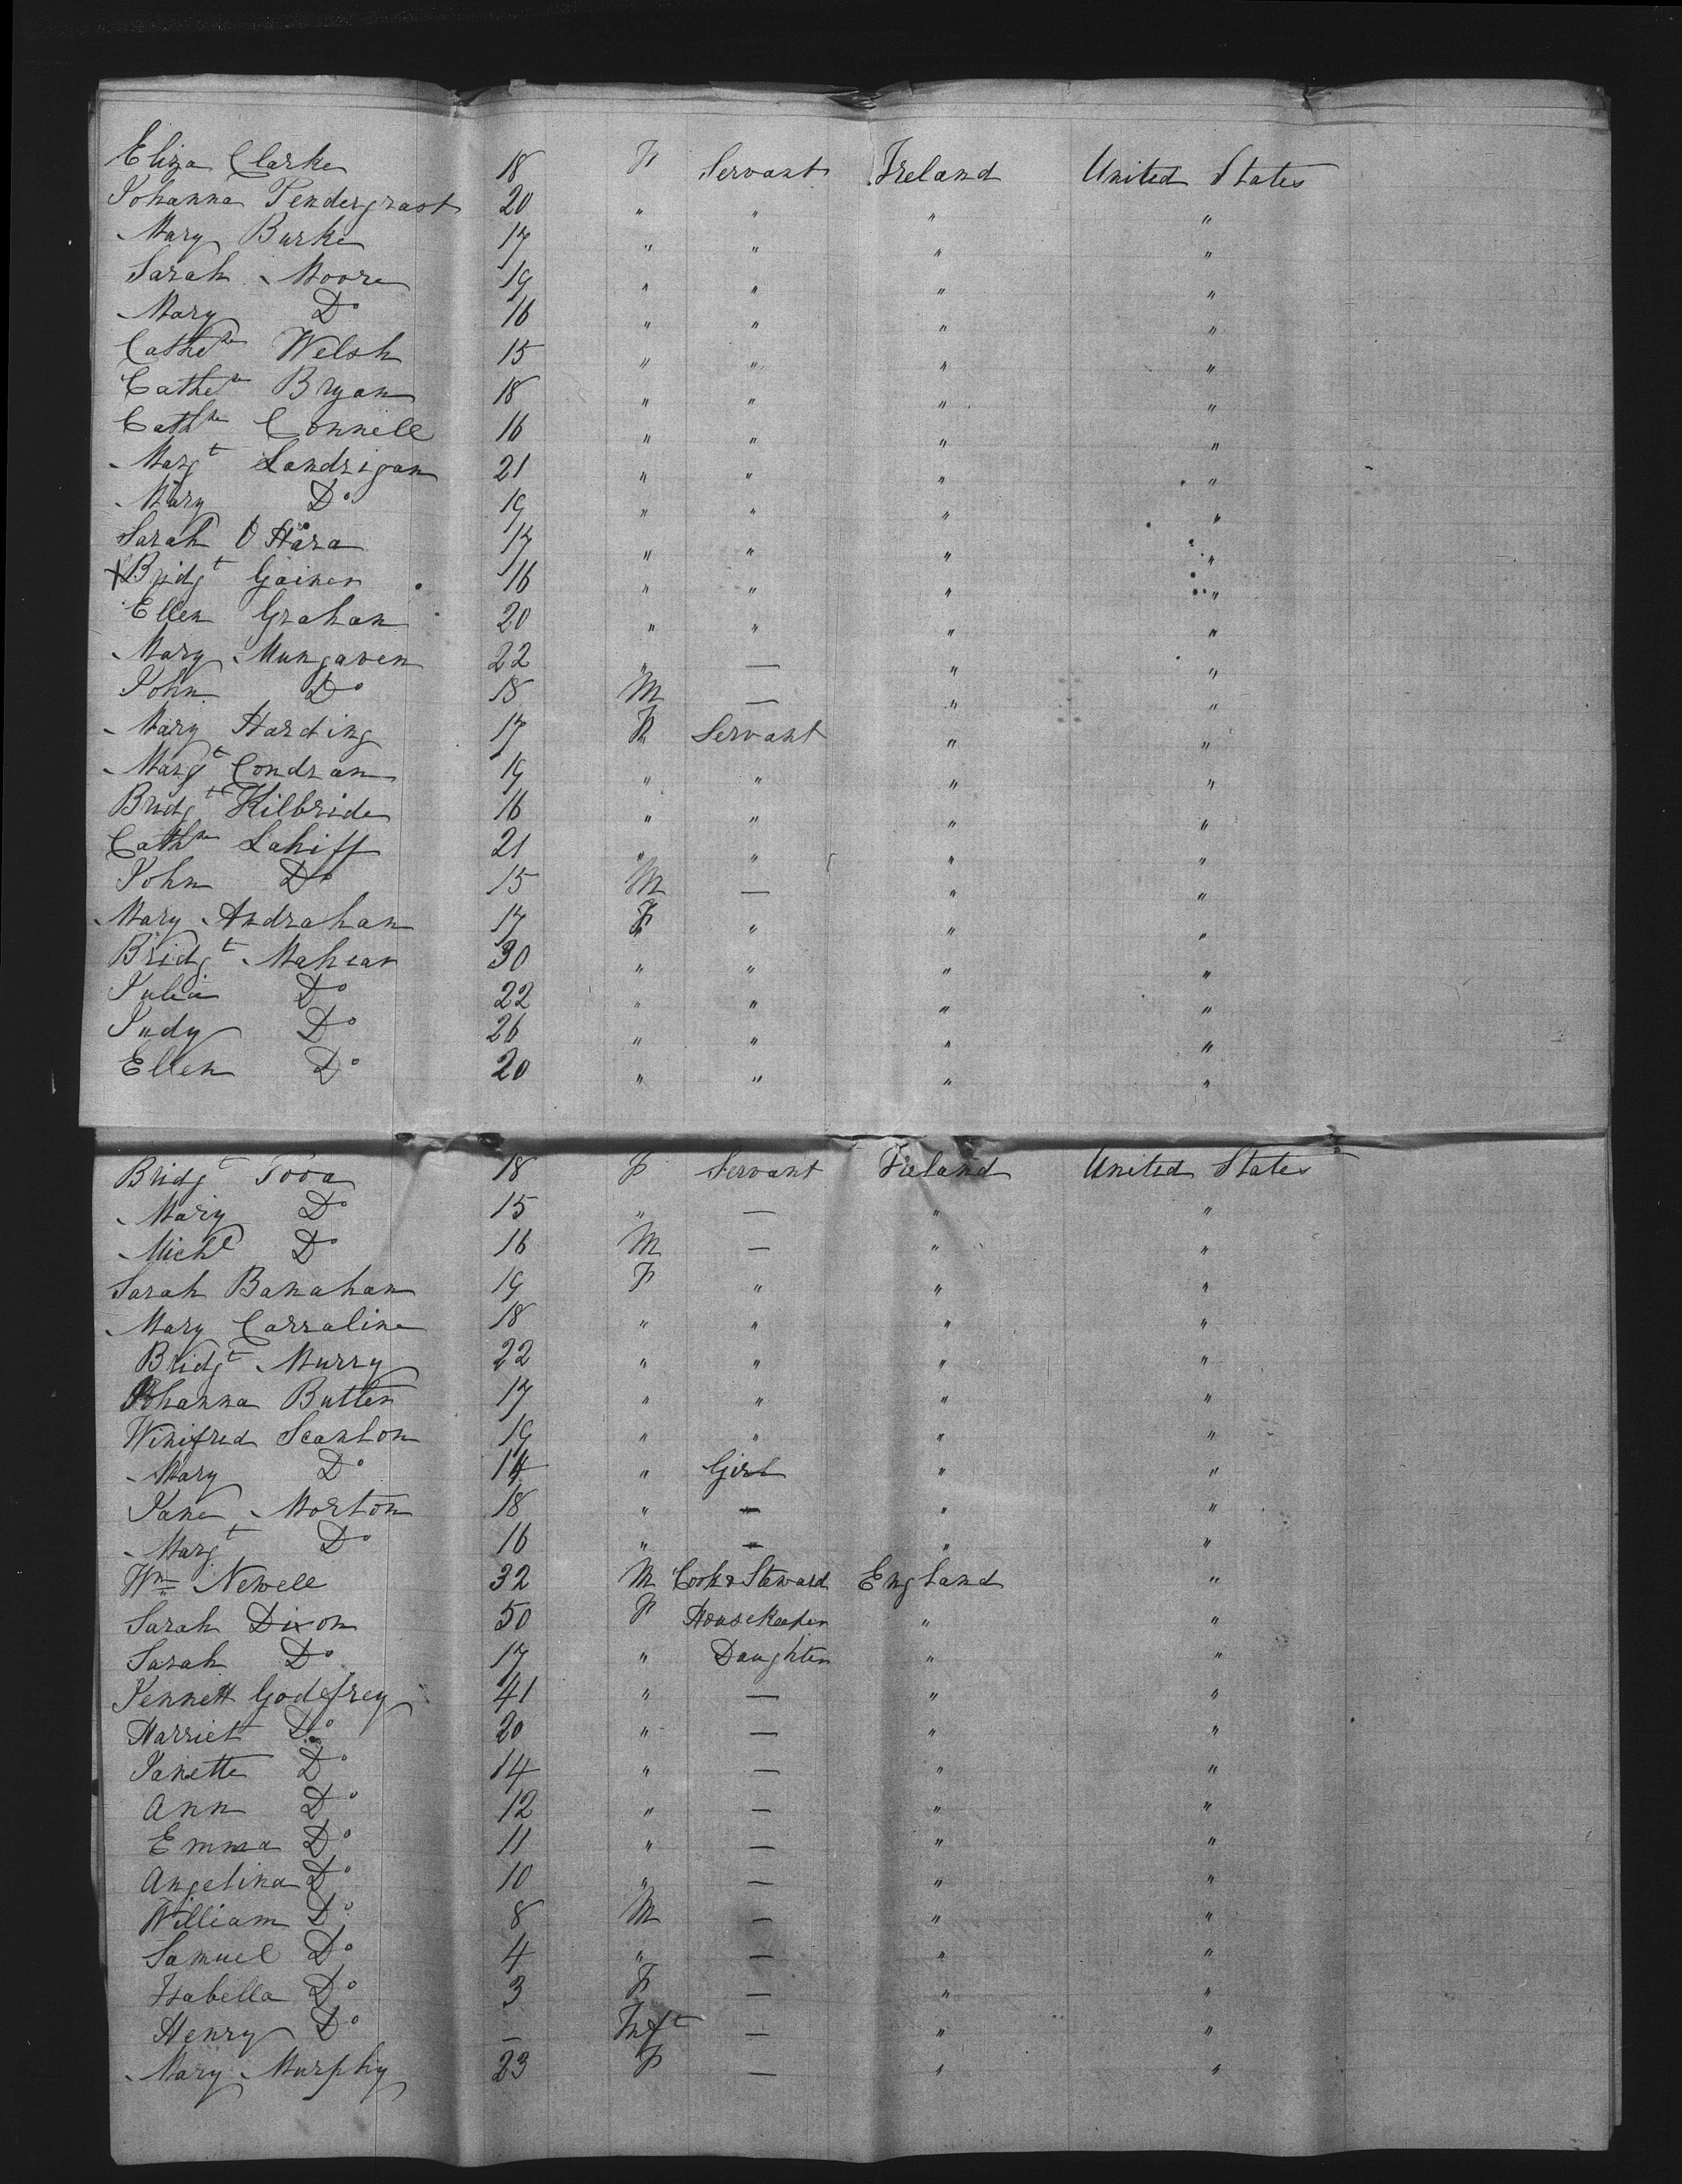 Eliza Clarke 18 F Servant Ireland United States
Johanna Pendergrast 20 " " " "
Mary Burke 17 " " " "
Sarah Moore 19 " " " "
Mary Do 16 " " " "
Cathe ne Welsh 15 " " " "
Cathe ne Bryan 18 " " " "
Cath ne Connell 16 " " " "
Margt Landrigan 21 " " " "
Mary Do 19 " " " "
Sarah O Hara 17 " " " "
X Bridgt Gainer 16 " " " "
Ellen Grahan 20 " " " "
Mary Mungaven 22 " — " "
John Do 18 M — " "
Mary Harding 17 F Servant " "
Margt Condran 19 " " " "
Bridgt Kilbride 16 " " " "
Cathne Lahiff 21 " " " "
John Do 15 M — " "
Mary Andrahan 17 F " " "
Bridgt Mahear 30 " " " "
Julia Do 22 " " " "
Judy Do 26 " " " "
Ellen Do 20 " " " "
Bridgt 18 F Servant Ireland United States
Mary Do 15 " — " "
Michl Do 16 M — " "
Sarah Banahan 19 F " " "
Mary Carraline 18 " " " "
Bridgt Murry 22 " " " "
Johanna Butler 17 " " " "
Winifred Scanlon 19 " " " "
Mary Do 14 " Girl " "
Jane Morton 18 " — " "
Margt Do 16 " — " "
Wm Newell 32 M Cook & Steward England "
Sarah Dixon 50 F Housekeeper " "
Sarah Do 17 " Daughter " "
Jennett Godefrey 41 " — " "
Harriet Do 20 " — " "
Janette Do 14 " — " "
Ann Do 12 " — " "
Emma Do 11 " — " "
Angelina Do 10 " — " "
William Do 8 M — " "
Samuel Do 4 " — " "
Isabella Do 3 F — " "
Henry Do — Inft — " "
Mary Murphy 23 F — " "